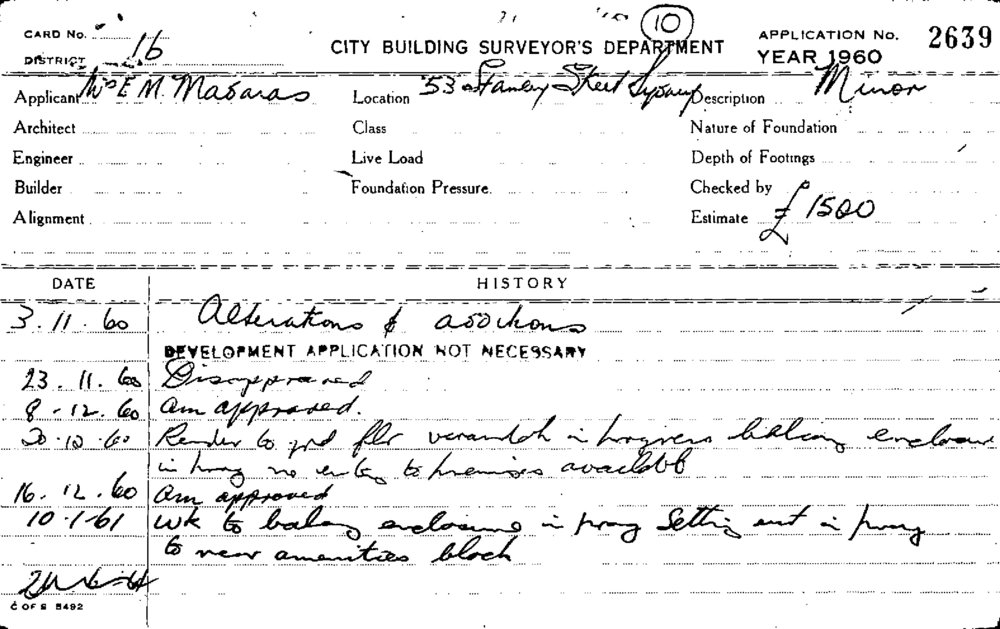 10
CARD No.
DISTRICT 16
CITY BUILDING SURVEYOR'S DEPARTMENT
APPLICATION No. 2639
YEAR 1960
Applicant Mrs E M. Madaras
Location 53 Stanley Street Sydney
Description Minor
Architect
Class
Nature of Foundation
Engineer
Live Load
Depth of Footings
Builder
Foundation Pressure.
Checked by
Alignment
Estimate £1500
DATE HISTORY
3.11.60 Alterations & additions
DEVELOPMENT APPLICATION NOT NECESSARY
23.11.60 Disapproved
8-12.60 Am approved.
Render to grd flr verandah in progress balcony enclosure
in prog no entry to premises available
16.12.60 Am approved
10.1.61 Wk to balcony enclosure in prog Setting out in prog
to rear amenities block
C OF S 5492